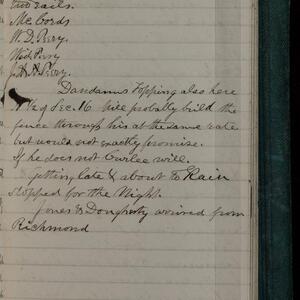 two rails.
McCords
W. D. Perry.
Wed Perry
J. H. Perry.
Dandamus Topping also here
1/2 of Sec. 16 will probably build the
fence through his at the same rate
but would not exactly promise.
If he does not Curlee will.
getting late & about to Rain
stopped for the Night.
Jones & Dougherty arrived from
Richmond